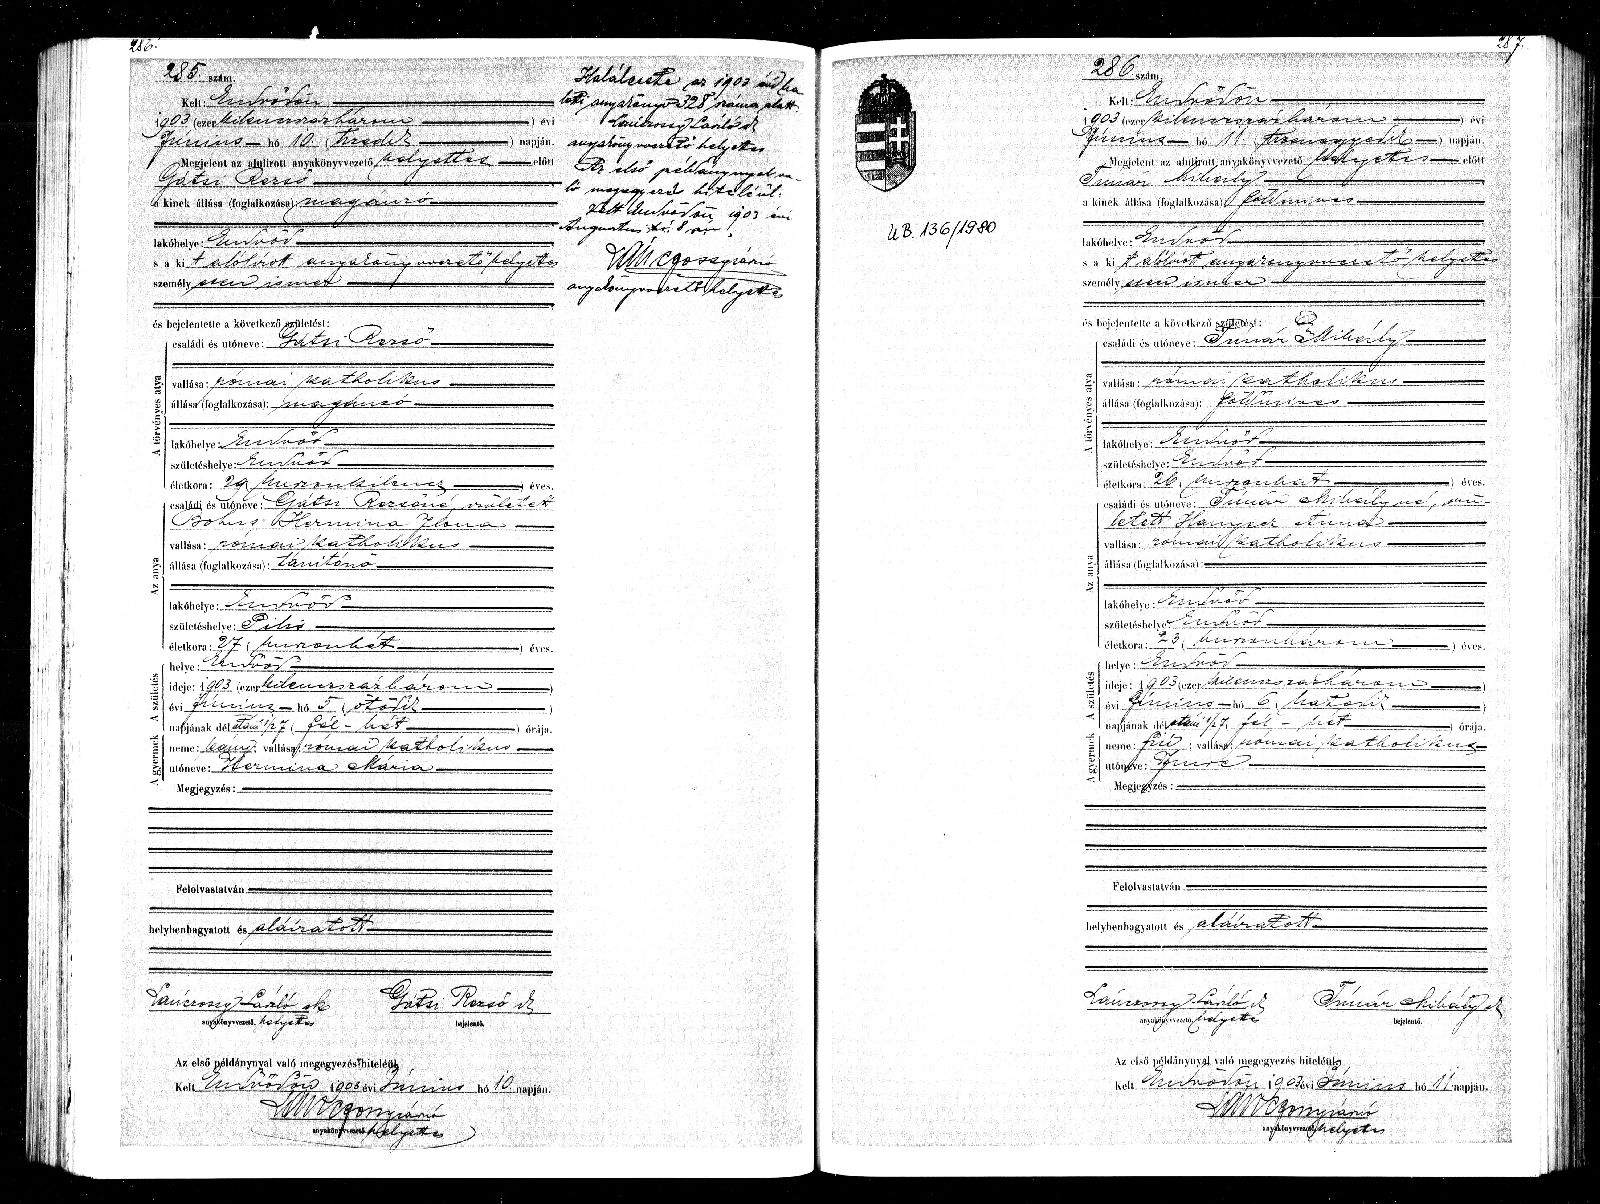 286.
285 szám.
Kelt: Endrődön
1903 (ezer kilencszázhárom) évi
Június hó 10. (tizedik) napján.
Megjelent az alulirott anyakönyvvezető helyettes előtt
Gátsi Rezső
a kinek állása (foglalkozása) magánzó
lakóhelye: Endrőd
s a ki t alólírott anyakönyvvezető helyettes
személyesen ismer
és bejelentette a következő születést:
A törvényes atya
családi és utóneve: Gátsi Rezső
vallása: római katholikus
állása (foglalkozása): magánzó
lakóhelye: Endrőd
születéshelye: Endrőd
életkora: 29 (huszonkilencz) éves.
Az anya
családi és utóneve: Gátsi Rezsőné, született
Hermina Ilona
vallása: római katholikus
állása (foglalkozása): tanítónő
lakóhelye: Endrőd
születéshelye: Pilis
életkora: 27 (huszonhét) éves.
A születés
helye: Endrőd
ideje: 1903 (ezer kilencszázhárom)
évi június hó 5 (ötödik)
napjának délutáni 1/27 (fél-hét) órája.
A gyermek
neme: leány; vallása: római katholikus
utóneve: Hermina Mária
Megjegyzés:
Felolvastatván
helybenhagyatott és aláíratott
Lánczossy László sk Gátsi Rezső sk
anyakönyvvezető helyettes bejelentő.
Az első példánynyal való megegyezés hiteléül
Kelt Endrődön 1903 évi Június hó 10. napján.
anyakönyvvezető helyettes
Halálesete az 1903 évi ha
lotti anyakönyv 328 száma alatt
Lánczossy László sk
anyakönyvvezető helyettes
Az első példánynyal va-
ló megegyezés hiteléül:
Kelt Endrődön, 1903 évi
Augustus hó 8-án.
anyakönyvvezető helyettes
UB. 136/1980
287.
286 szám.
Kelt: Endrődön
1903 (ezer kilencszázhárom) évi
Június hó 11. (tizenegyedik) napján.
Megjelent az alulirott anyakönyvvezető helyettes előtt
Tímár Mihály
a kinek állása (foglalkozása) földmíves
lakóhelye: Endrőd
s a ki t alólírott anyakönyvvezető helyettes
személyesen ismer
és bejelentette a következő születést:
A törvényes atya
családi és utóneve: Tímár Mihály
vallása: római katholikus
állása (foglalkozása): földmíves
lakóhelye: Endrőd
születéshelye: Endrőd
életkora: 26 (huszonhat) éves.
Az anya
családi és utóneve: Tímár Mihályné, szü-
letett Hanyecz Anna
vallása: római katholikus
állása (foglalkozása):
lakóhelye: Endrőd
születéshelye: Endrőd
életkora: 23 (huszonhárom) éves.
A születés
helye: Endrőd
ideje: 1903 (ezer kilencszázhárom)
évi június hó 6 (hatodik)
napjának délutáni 1/27 (fél-hét) órája.
A gyermek
neme: fiú; vallása: római katholikus
utóneve: Imre
Megjegyzés:
Felolvastatván
helybenhagyatott és aláíratott
Lánczossy László sk Tímár Mihály sk
anyakönyvvezető helyettes bejelentő.
Az első példánynyal való megegyezés hiteléül
Kelt Endrődön 1903 évi Június hó 11 napján.
anyakönyvvezető helyettes